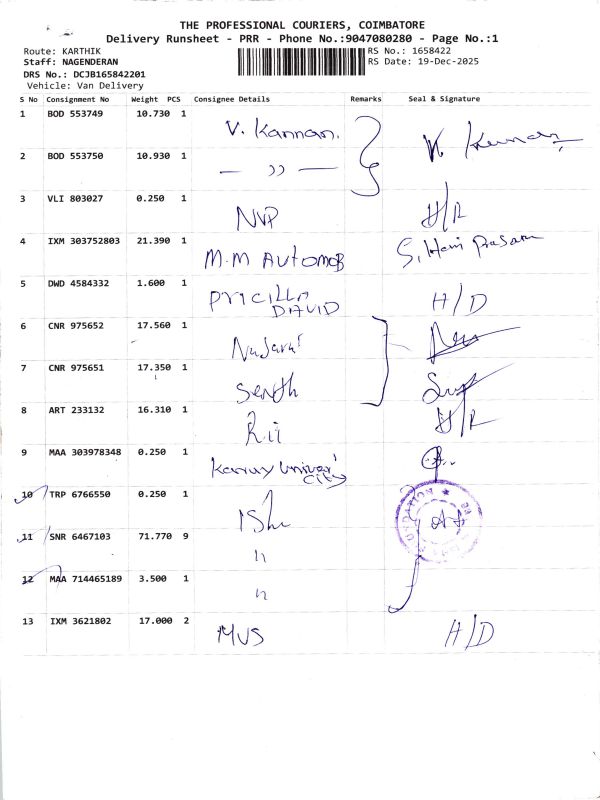 THE PROFESSIONAL COURIERS, COIMBATORE
Delivery Runsheet - PRR - Phone No.:9047080280 - Page No.:1
Route: KARTHIK
Staff: NAGENDERAN
DRS No.: DCJB165842201
Vehicle: Van Delivery
RS No.: 1658422
RS Date: 19-Dec-2025
S No Consignment No Weight PCS Consignee Details Remarks Seal & Signature
1 BOD 553749 10.730 1 V. Kannan.
2 BOD 553750 10.930 1 — ,, —
3 VLI 803027 0.250 1 NVP H/R
4 IXM 303752803 21.390 1 M.M AUTOMOB S. Hari Prasan
5 DWD 4584332 1.600 1 PRICILLA DAVID H/D
6 CNR 975652 17.560 1
7 CNR 975651 17.350 1
8 ART 233132 16.310 1 H/R
9 MAA 303978348 0.250 1
10 TRP 6766550 0.250 1
11 SNR 6467103 71.770 9 ,,
12 MAA 714465189 3.500 1 ,,
13 IXM 3621802 17.000 2 MVS H/D